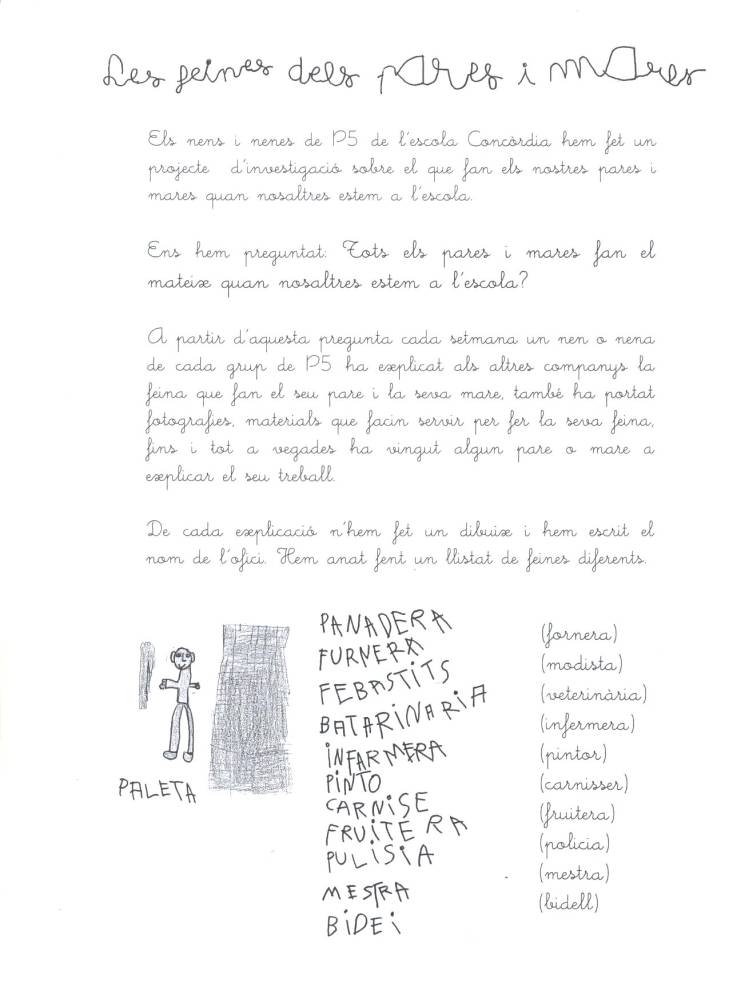 Les feines dels pares i mares
Els nens i nenes de P5 de l'escola Concòrdia hem fet un
projecte d'investigació sobre el que fan els nostres pares i
mares quan nosaltres estem a l'escola.
Ens hem preguntat: Tots els pares i mares fan el
mateix quan nosaltres estem a l'escola?
A partir d'aquesta pregunta cada setmana un nen o nena
de cada grup de P5 ha explicat als altres companys la
feina que fan el seu pare i la seva mare, també ha portat
fotografies, materials que facin servir per fer la seva feina,
fins i tot a vegades ha vingut algun pare o mare a
explicar el seu treball.
De cada explicació n'hem fet un dibuix i hem escrit el
nom de l'ofici. Hem anat fent un llistat de feines diferents.
PALETA
PANADERA
FURNERA (fornera)
FEBASTITS (modista)
BATARINARIA (veterinària)
INFARMERA (infermera)
PINTO (pintor)
CARNISE (carnisser)
FRUITERA (fruitera)
PULISIA (policia)
MESTRA (mestra)
BIDEI (bidell)